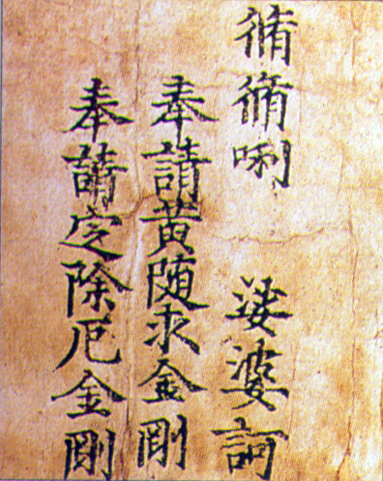 脩脩唎 娑婆訶
奉請黄随求金剛
奉請㝎除厄金剛